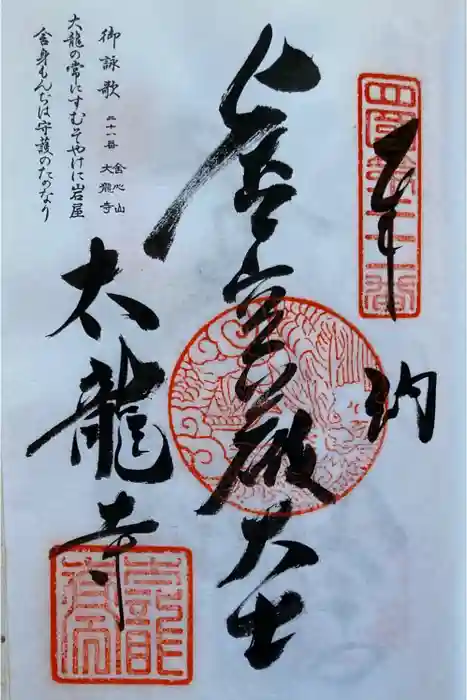 四国第二十一番
奉納
虚空蔵大士
太龍寺
御詠歌 二十一番 舎心山 太龍寺
太龍の常にすむそやけに岩屋
舎身もんぢは守護のためなり